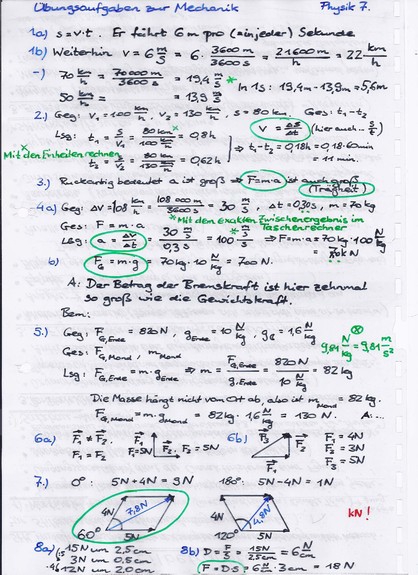 Übungsaufgaben zur Mechanik Physik 7.
1a) s = v·t. Er führt 6m pro (in jeder) Sekunde
1b) Weiterhin v = 6 m/s = 6 · 3600 m / 3600 s = 21600 m / h = 22 km/h
-) 70 km/h = 70000 m / 3600 s = 19,4 m/s * In 1s: 19,4m - 13,9m = 5,6m
50 km/h = = 13,9 m/s
2.) Geg: v₁ = 100 km/h, v₂ = 130 km/h, s = 80 km. Ges: t₁ - t₂
v = Δs/Δt (hier auch.. s/t)
Lsg: t₁ = s/v₁ = 80 km / 100 km/h = 0,8h
* Mit den Einheiten rechnen
t₂ = s/v₂ = 80 km / 130 km/h = 0,62h ⇒ t₁-t₂ = 0,18h = 0,18·60min
= 11 min.
3.) Ruckartig bedeutet a ist groß ⇒ F = m·a ist auch groß
(Trägheit)
4a) Geg: Δv = 108 km/h = 108 000 m / 3600 s = 30 m/s, Δt = 0,30s, m = 70kg
Ges: F = m·a * Mit den exakten Zwischenergebnis im Taschenrechner
Lsg: a = Δv/Δt = 30 m/s / 0,3 s = 100 m/s² ⇒ F = m·a = 70kg · 100 N/kg
= 7,0 kN
b) F_G = m·g = 70kg · 10 N/kg = 700N.
A: Der Betrag der Bremskraft ist hier zehnmal
so groß wie die Gewichtskraft.
Bem:
5.) Geg: F_G,Erde = 820N, g_Erde = 10 N/kg, g_☾ = 1,6 N/kg
9,81 N/kg = 9,81 m/s²
Ges: F_G,Mond, m_Mond
Lsg: F_G,Erde = m·g_Erde ⇒ m = F_G,Erde / g_Erde = 820N / 10 N/kg = 82 kg
Die Masse hängt nicht vom Ort ab, also ist m_Mond = 82 kg.
F_G,Mond = m·g_Mond = 82kg · 1,6 N/kg = 130 N. A:...
6a) F₁ ≠ F₂. F₁ = 5N F₂ = 5N 6b) F₃ F₂ F₁ F₁ = 4N
F₁ = F₂ F₂ = 3N
F₃ = 5N
7.) 0°: 5N + 4N = 9N 180°: 5N - 4N = 1N
4N 7,8N 60° 5N 4N 4,8N 120° 5N kN!
8a) 15N um 2,5cm 8b) D = F/s = 15N / 2,5cm = 6 N/cm
3N um 0,5cm
12N um 2,0cm F = D·s = 6 N/cm · 3cm = 18N